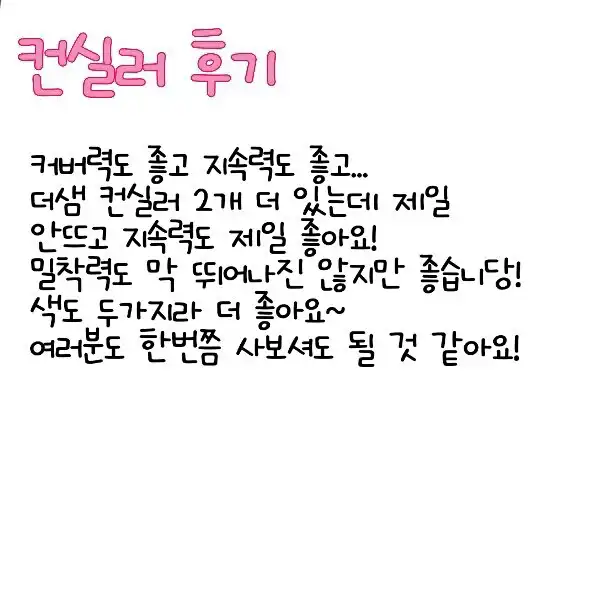 컨실러 후기
커버력도 좋고 지속력도 좋고...
더샘 컨실러 2개 더 있는데 제일
안뜨고 지속력도 제일 좋아요!
밀착력도 막 뛰어나진 않지만 좋습니당!
색도 두가지라 더 좋아요~
여러분도 한번쯤 사보셔도 될 것 같아요!